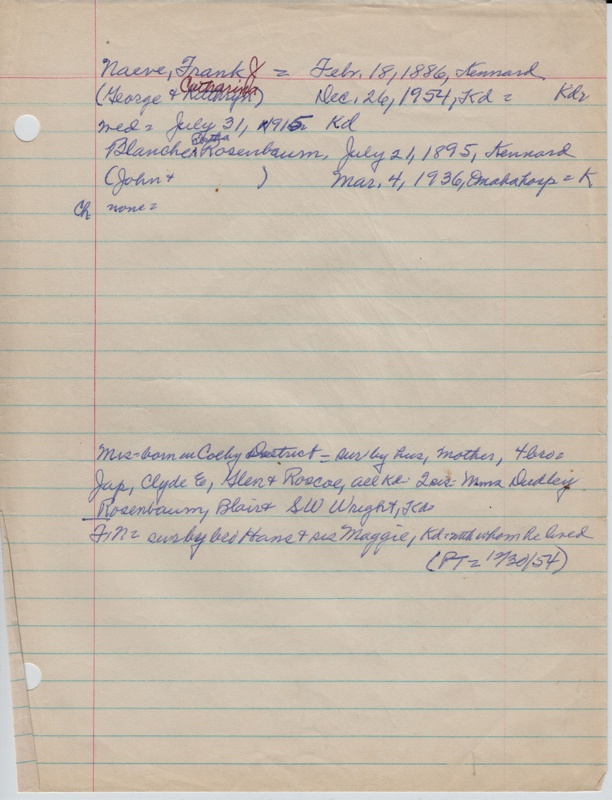 Naeve, Frank J = Febr. 18, 1886, Kennard
Catharina
(George & Kathryn) Dec. 26, 1954, Kd = Kdr
med = July 31, 1915 Kd
Bertha
Blanche Rosenbaum, July 21, 1895, Kennard
(John + ) Mar. 4, 1936, Omaha hosp = K
Ch none =
Mrs - born in Colby District = sur by hus, mother, 4 bro =
Jap, Clyde E, Glen & Roscoe, all Kd - 2 sis - Mmes Dudley
Rosenbaum, Blair & SW Wright, Kd =
F.N = surv by bro Hans & sis Maggie, Kd - with whom he lived
(PT = 12/30/54)